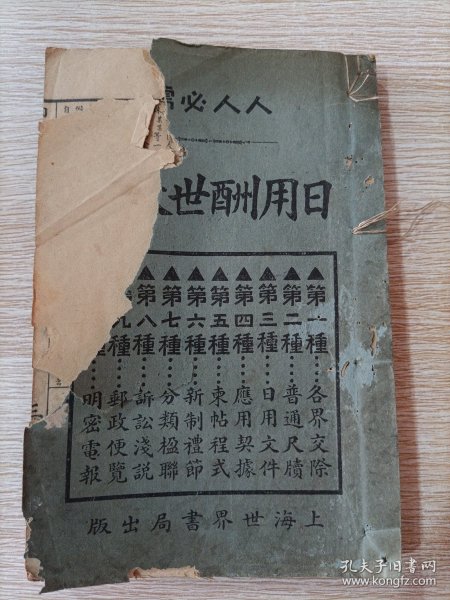 人人必需
日用酬世
▲第一種⋯⋯各界交際
▲第二種⋯⋯普通尺牘
▲第三種⋯⋯日用文件
▲第四種⋯⋯應用契據
▲第五種⋯⋯柬帖程式
▲第六種⋯⋯新制禮節
▲第七種⋯⋯分類楹聯
▲第八種⋯⋯訴訟淺説
第九種⋯⋯郵政便覽
種⋯⋯明密電報
上海世界書局出版
孔夫子旧书网
www.kongfz.com